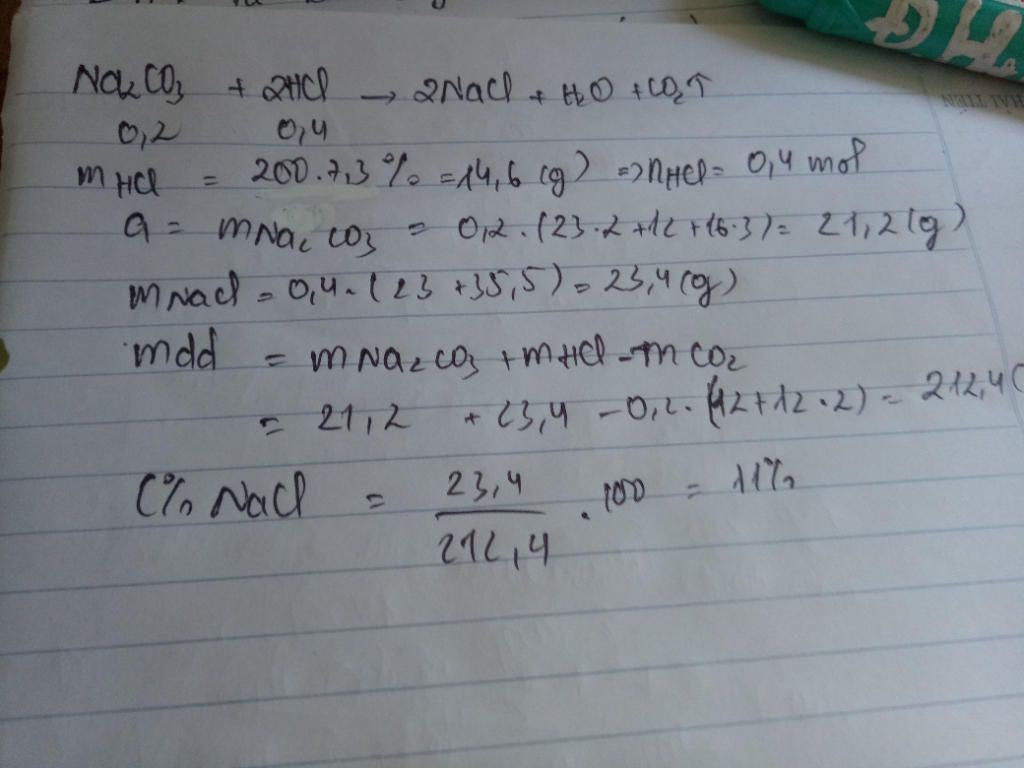 Na₂CO₃ + 2HCl → 2NaCl + H₂O + CO₂↑
0,2 0,4
mHCl = 200.7,3% = 14,6 (g) => nHCl = 0,4 mol
a = mNa₂CO₃ = 0,2.(23.2+12+16.3) = 21,2 (g)
mNaCl = 0,4.(23+35,5) = 23,4 (g)
mdd = mNa₂CO₃ + mHCl - mCO₂
= 21,2 + 23,4 - 0,2.(12+12.2) = 212,4(
C% NaCl = 23,4 / 212,4 . 100 = 11%
HẢI TIẾN